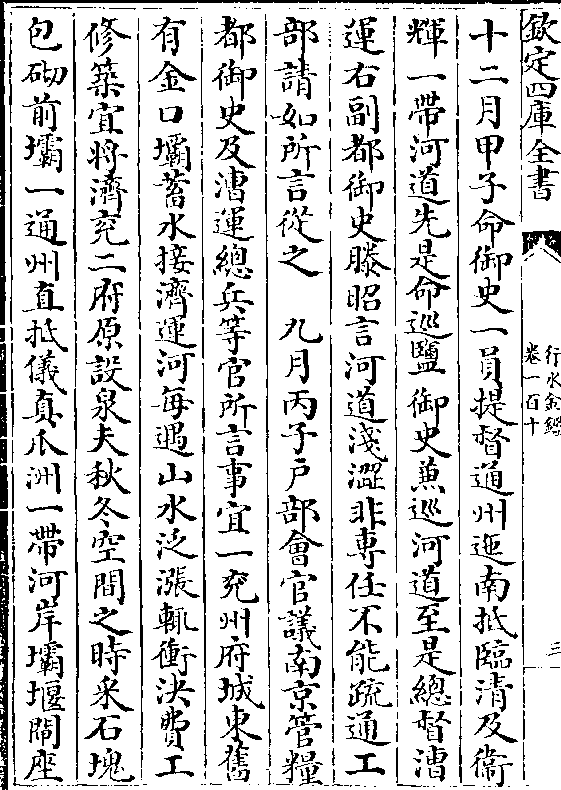 欽定四庫全書
行水金鑑
卷一百十
三
十二月甲子命御史一員提督通州迤南抵臨清及衞
輝一帶河道先是命巡鹽御史兼巡河道至是總督漕
運右副都御史滕昭言河道淺澀非專任不能疏通工
部請如所言從之　九月丙子戶部會官議南京管糧
都御史及漕運總兵等官所言事宜一兖州府城東舊
有金口壩蓄水接濟運河每遇山水泛漲輒衝決費工
修築宜將濟兖二府原設泉夫秋冬空閒之時采石塊
包砌前壩一通州直抵儀真瓜洲一帶河岸壩堰閘座